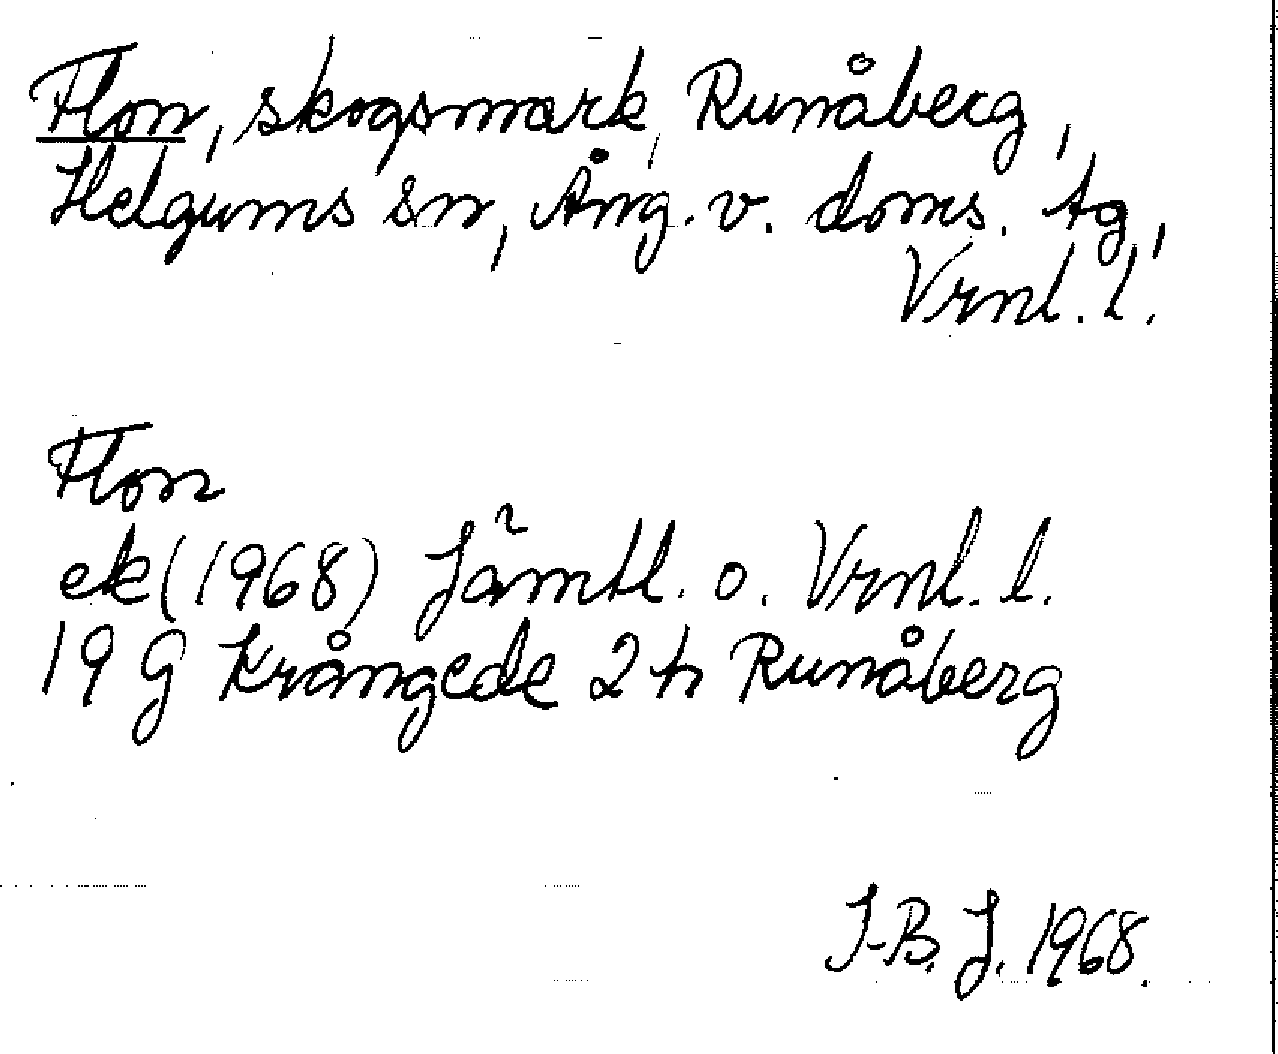 Flon, skogsmark, Runåberg,
Helgums sn, Ång. v. doms. tg,
Vrnl. l.
Flon
ek (1968) Jämtl. o. Vrnl. l.
19 G Krångede 2 h Runåberg
I-B. J. 1968.